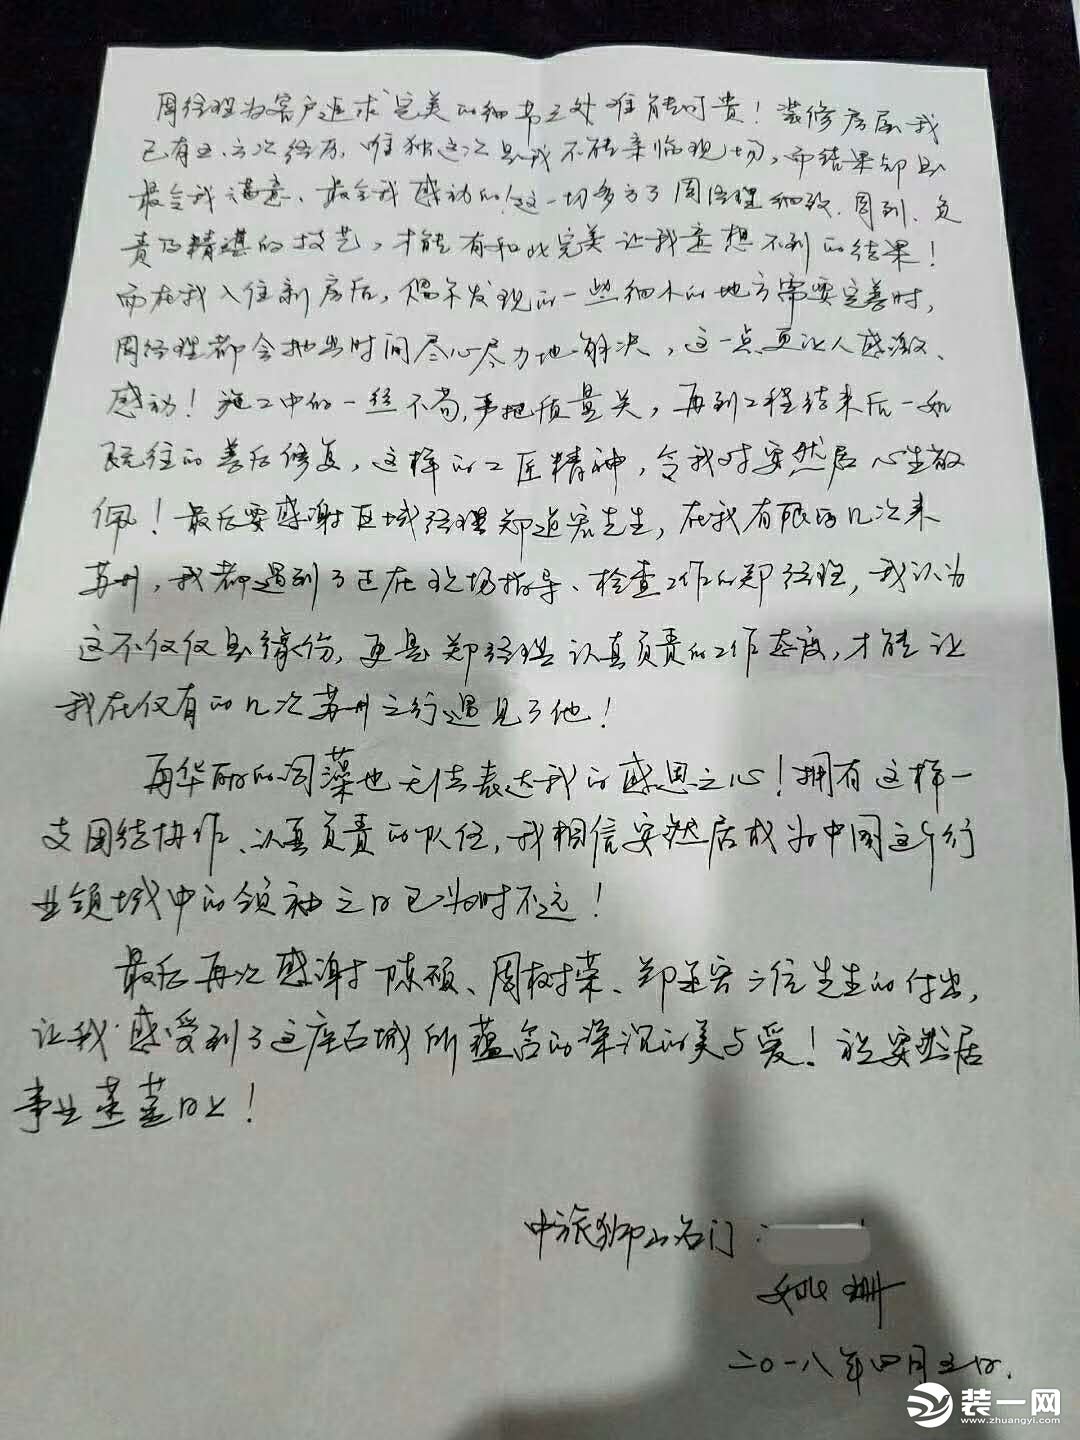 周经理为客户追求完美的细节之处难能可贵！装修房屋我
已有五、六次经历，唯独这次是我不能亲临现场，而结果却是
最令我满意、最令我感动的！这一切多亏了周经理细致、周到、负
责及精湛的技艺，才能有如此完美让我意想不到的结果！
而在我入住新房后，偶尔发现的一些细小的地方需要完善时，
周经理都会抽出时间尽心尽力地解决，这一点更让人感激、
感动！施工中的一丝不苟，严把质量关，再到工程结束后一如
既往的善后修复，这样的工匠精神，令我对安然居心生敬
佩！最后要感谢区域经理郑道宏先生，在我有限的几次来
苏州，我都遇到了正在现场指导、检查工作的郑经理，我认为
这不仅仅是缘份，更是郑经理认真负责的工作态度，才能让
我在仅有的几次苏州之行遇见了他！
再华丽的词藻也无法表达我的感恩之心！拥有这样一
支团结协作、认真负责的队伍，我相信安然居成为中国这个行
业领域中的领袖之日已为时不远！
最后再次感谢陈硕、周树荣、郑道宏三位先生的付出，
让我感受到了这座古城所蕴含的深沉的美与爱！祝安然居
事业蒸蒸日上！
中旅狮山名门：
姚珊
二〇一八年四月五日．
装一网
www.zhuangyi.com